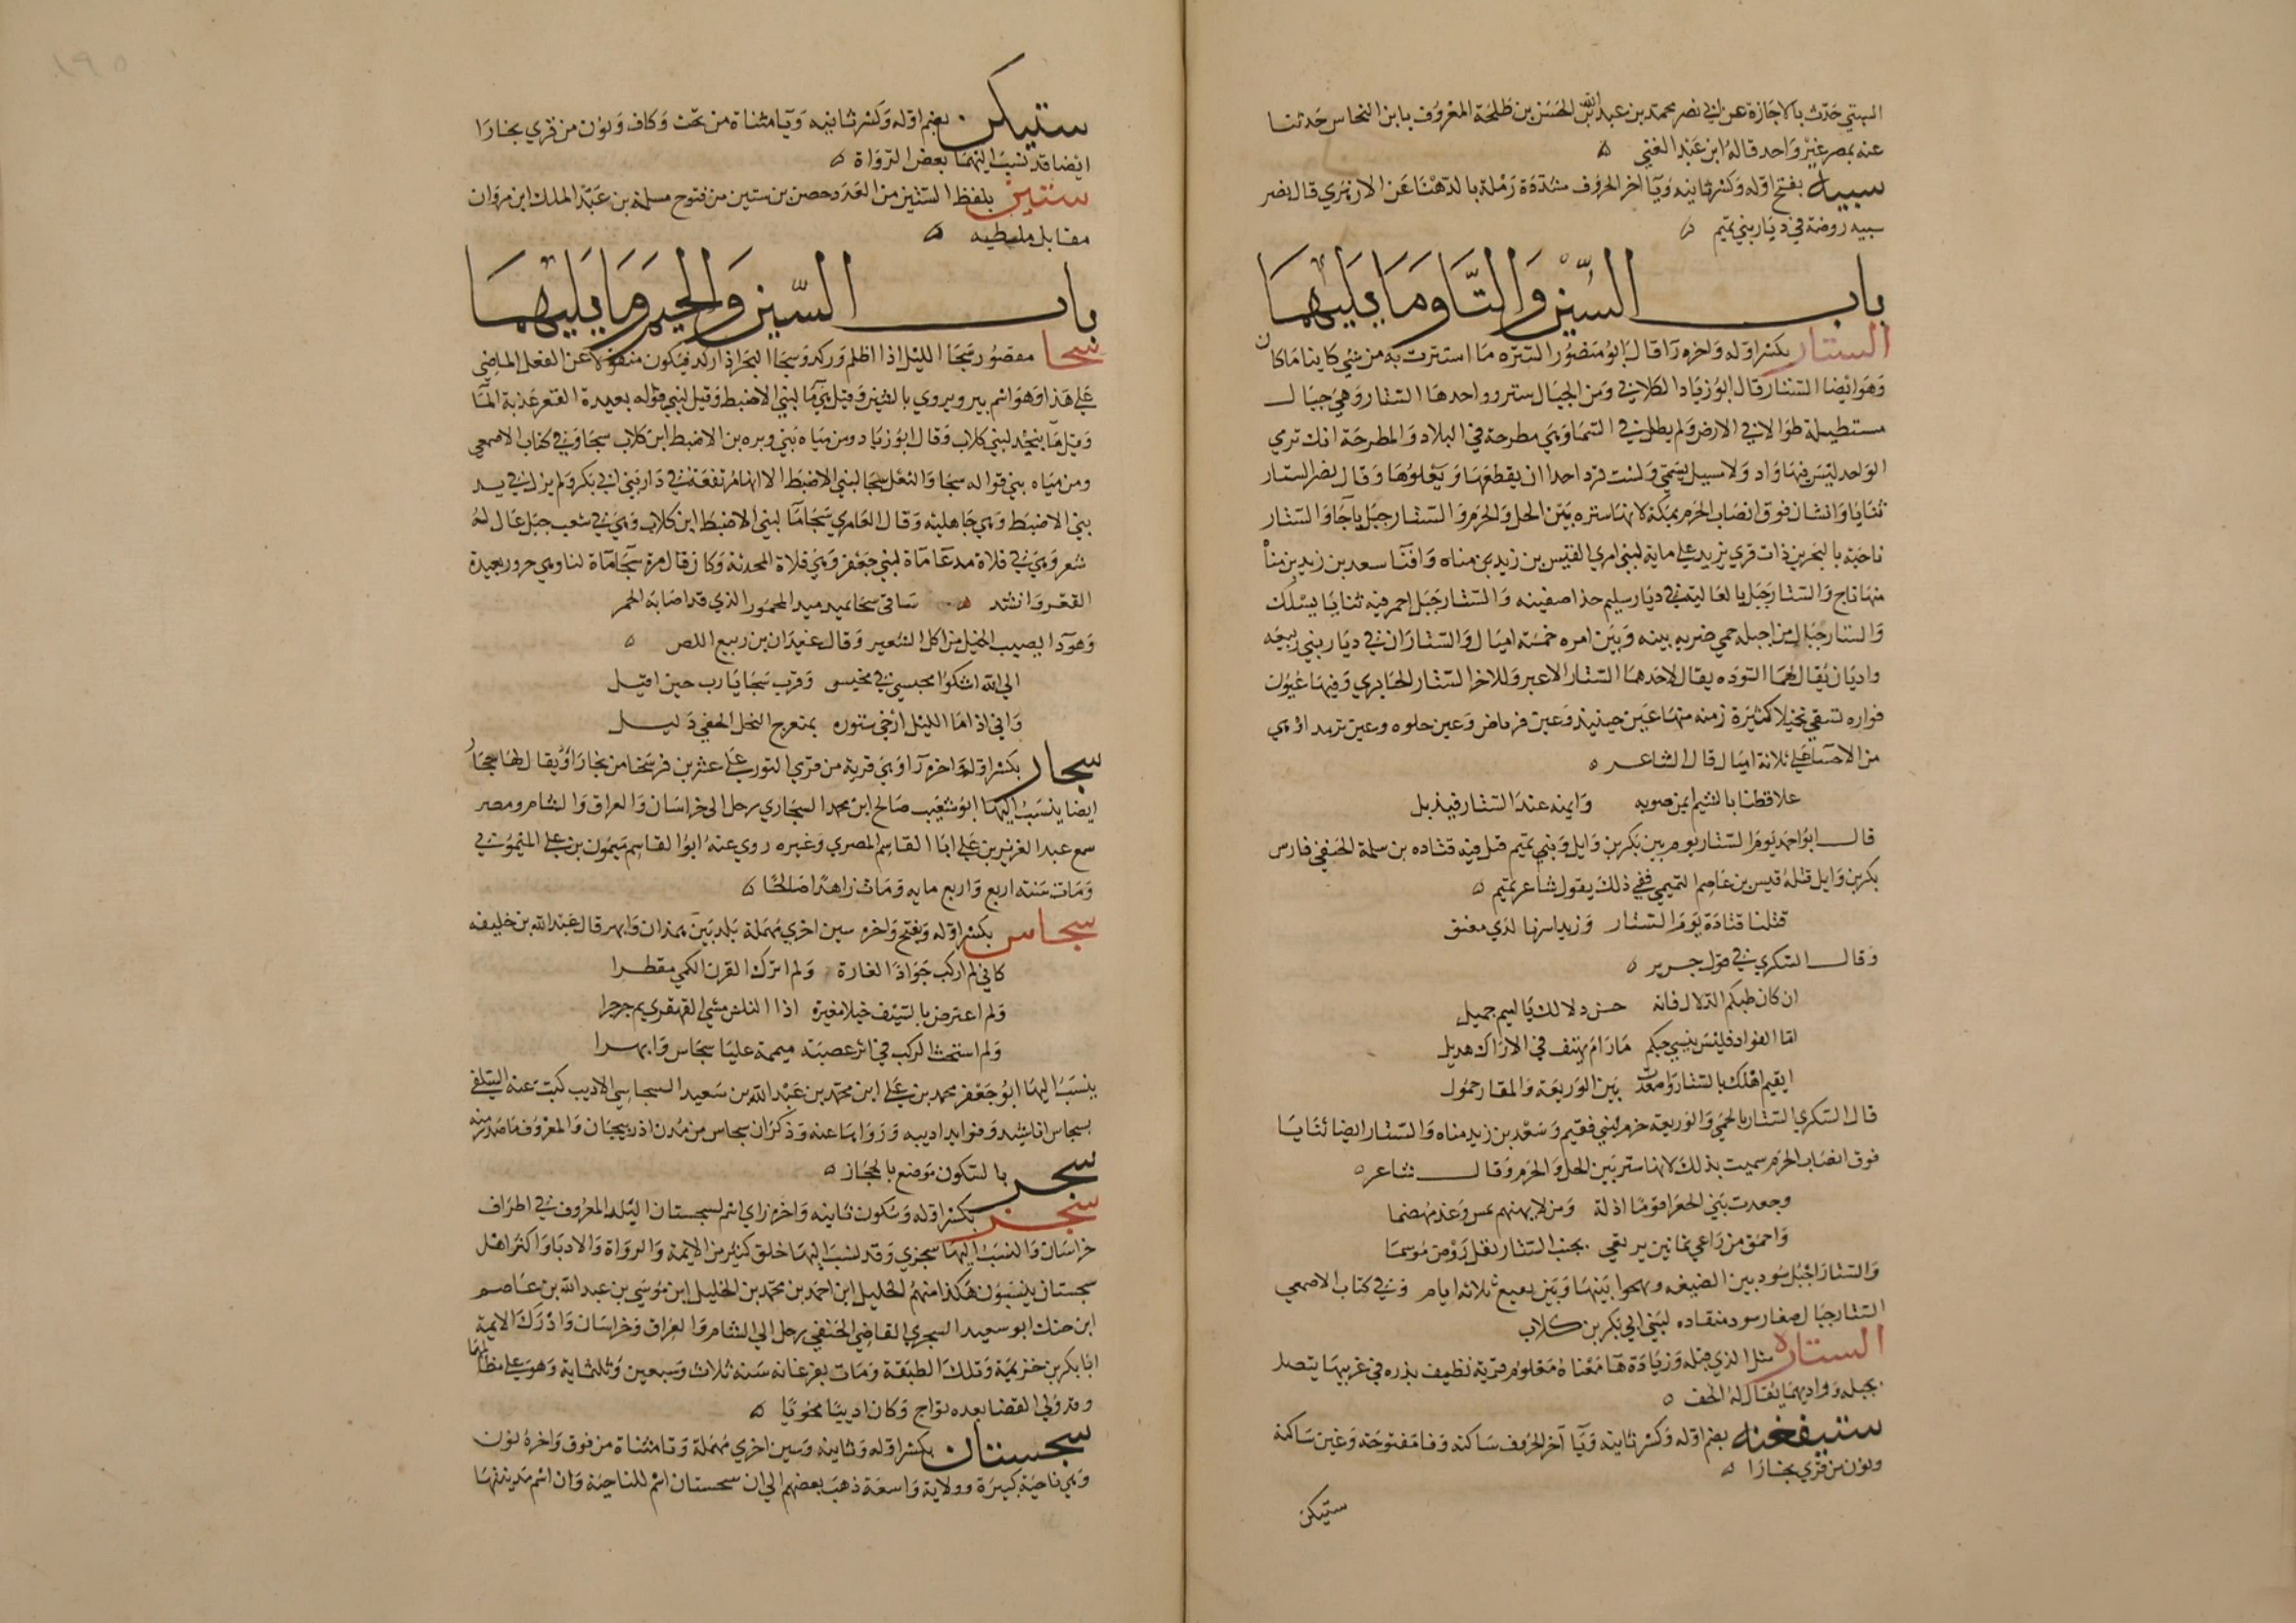 البستي حدث بالاجازة عن ابي نصر محمد بن عبد الله بن الحسن بن طلحة المعروف بابن النحاس حدثنا
عنه بمصر غير واحد قاله ابن عبد الغني
سبيه بفتح اوله وكسر ثانيه ويا اخر الحروف مشددة رملة بالدهنا عن الازهري قال نصر
سبيه روضة في ديار بني تميم
باب السين والتا وما يليهما
الستار بكسر اوله واخره را قال ابو منصور السترة ما استترت به من شي كاينا ما كان
وهو ايضا الستار قال ابو زياد الكلابي ومن الجبال ستر وواحدها الستار وهي جبال
مستطيلة طوالا في الارض ولم يطل في السما وهي مطرحة في البلاد والمطرحة انك تري
الواحد ليس فيها واد ولا سبيل ولست ترد احدا ان يقطعها ويعلوها وقال نصر الستار
ثنايا وانشان فوق انصاب الحرم بمكة لانها سترة بين الحل والحرم والستار جبل باجا والستار
ناحية بالبحرين ذات قري تزيد علي ماية لبني امري القيس بن زيد بن مناه وافنا سعد بن زيد بن مناه
منها ثاج والستار جبل بالعالية في ديار سليم حذا صفينه والستار جبل احمر فيه ثنايا يسلك
والستار جبال من اجبله حمي ضريه بينه وبين امره خمسة اميال والستاران في ديار بني ربيعه
واديان يقال لهما السوده يقال لاحدهما الستار الاغبر وللاخر الستار الجابري وفيها عيون
فواره تسقي نخيلا كثيرة زمنه منها عين حنيذ وعين فرياض وعين حلوه وعين ثرمدا وهي
من الاحسا علي ثلاثة اميال قال الشاعر
علا قطنا بالشيم ايمن صوبه وايمنه عند الستار فيذبل
قال ابو احمد يوم الستار يوم بين بكر بن وايل وبني تميم قتل فيه قتاده بن سلمة الحنفي فارس
بكر بن وايل قتله قيس بن عاصم التميمي ففي ذلك يقول شاعر تميم
قتلنا قتادة يوم الستار وزيدا اسرنا لدي معنق
وقال السكري في قول جرير
ان كان طبكم الدلال فانه حسن دلالك يا اميم جميل
اما الفواد فليس ينسي حبكم ما دام يهتف في الاراك هديل
ايقيم اهلك بالستار واصعدت بين الوريعة والمقاد حمول
قال السكري الستار بالحمي والوريعة حزم لبني فقيم وسعد بن زيد مناه والستار ايضا ثنايا
فوق انصاب الحرم سميت بذلك لانها ستر بين الحل والحرم وقال شاعر
وجعدت بني الجعرا قوما اذلة ومن لا يهنهم يمس وغدا مهضما
واحمق من راعي ثمانين يرتقي بجنب الستار بقل روض موسما
والستار اجبل سود بين الضيفه وبينها وبين ينبع ثلاثه ايام وفي كتاب الاصمعي
الستار جبال صغار سود منقاده لبني ابي بكر بن كلاب
الستارة مثل الذي قبله وزيادة ها معناه معلوم قرية تطيف بذره في غربيها يتصل
بجبله وواديهما يقال له لحف
ستيفغنه بضم اوله وكسر ثانيه ويا اخر الحروف ساكنه وفا مفتوحة وغين ساكنة
ونون من قري بخارا
ستيكن
ستيكن بضم اوله وكسر ثانيه ويا مثناة من تحت وكاف ونون من قري بخارا
ايضا قد نسب اليهما بعض الرواة
ستين بلفظ الستين من العدد حصن بن ستين من فتوح مسلمة بن عبد الملك ابن مروان
مقابل ملطيه
باب السين والجيم وما يليهما
سجا مقصور سجا الليل اذا اظلم وركد وسجا البحر اذا ركد فيكون منقولا عن الفعل الماضي
علي هذا وهو اسم بير ويروي بالشين وقيل هي ما لبني الاضبط وقيل لبني قوله بعيدة القعر عذبة الما
وقيل ما بنجد لبني كلاب وقال ابو زياد ومن مياه بني وبره بن الاضبط ابن كلاب سجا وفي كتاب الاصمعي
ومن مياه بني قواله سجا والثعل سجا لبني الاضبط الا انها مرتفعة في دار بني ابي بكر ولم يزل في يد
بني الاضبط وهي جاهلية وقال العامري سجا ما لبني الاضبط ابن كلاب وهي في شعب جبل عال له
شعر وهي في فلاة مدعا ماة لبني جعفر وهي فلاة المحدثة وكان قال مرة سجا ماة لنا وهي جرور بعيدة
القعر وانشد ساقي سجا يميد ميد المحمور الذي قد اصابه الحمر
وهو دا يصيب الخيل من اكل الشعير وقال غيدان بن ربيع اللص
الي الله اشكوا محبسي في مخيس وقرب سجا يا رب حين اقيل
واني اذا ما الليل ارخي ستوره بمنعرج النخل الخفي دليل
سجار بكسر اوله واخره را وهي قرية من قري النور علي عشرين فرسخا من بخارا ويقال لها ججار
ايضا ينسب اليها ابو شعيب صالح ابن محمد السجاري رحل الي خراسان والعراق والشام ومصر
سمع عبد العزيز بن علي ابا القاسم المصري وغيره روي عنه ابو القاسم ميمون بن علي الميموني
ومات سنة اربع واربع مايه ومات زاهدا صالحا
سجاس بكسر اوله ويفتح واخره سين اخري مهملة بلد بين همذان وابهر قال عبد الله بن خليفه
كاني لم اركب جوادا لغارة ولم اترك القرن الكمي مقطرا
ولم اعترض بالسيف خيلا مغيرة اذا النكس مشي القهقري يم جرجرا
ولم استحث الركب في اثر عصبة ميممة عليا سجاس وابهرا
ينسب اليها ابو جعفر محمد بن علي ابن محمد بن عبد الله بن سعيد السجاسي الاديب كتب عنه السلفي
بسجاس اناشيد وفوايد ادبيه وروا بها عنه وذكر ان سجاس من مدن اذربيجان والمعروف ما صدر منه
سجر بالسكون موضع بالحجاز
سجز بكسر اوله وسكون ثانيه واخره زاي اسم لسجستان البلد المعروف في اطراف
خراسان والنسب اليها سجزي وقد نسب اليها خلق كثير من الايمة والرواة والادبا واكثر اهل
سجستان ينسبون هكذا منهم الخليل ابن احمد بن محمد بن الخليل ابن موسي بن عبد الله بن عاصم
ابن جنك ابو سعيد السجزي القاضي الحنفي رحل الي الشام والعراق وخراسان وادرك الايمة
ابا بكر بن خزيمة وتلك الطبقة ومات بفرغانه سنة ثلاث وسبعين وثلثماية وهو علي مظالمها
وقد ولي القضا بعده نواح وكان اديبا نحويا
سجستان بكسر اوله وثانيه وسين اخري مهملة وتا مثناة من فوق واخره نون
وهي ناحية كبيرة وولاية واسعة ذهب بعضهم الي ان سجستان اسم للناحية وان اسم مدينتها